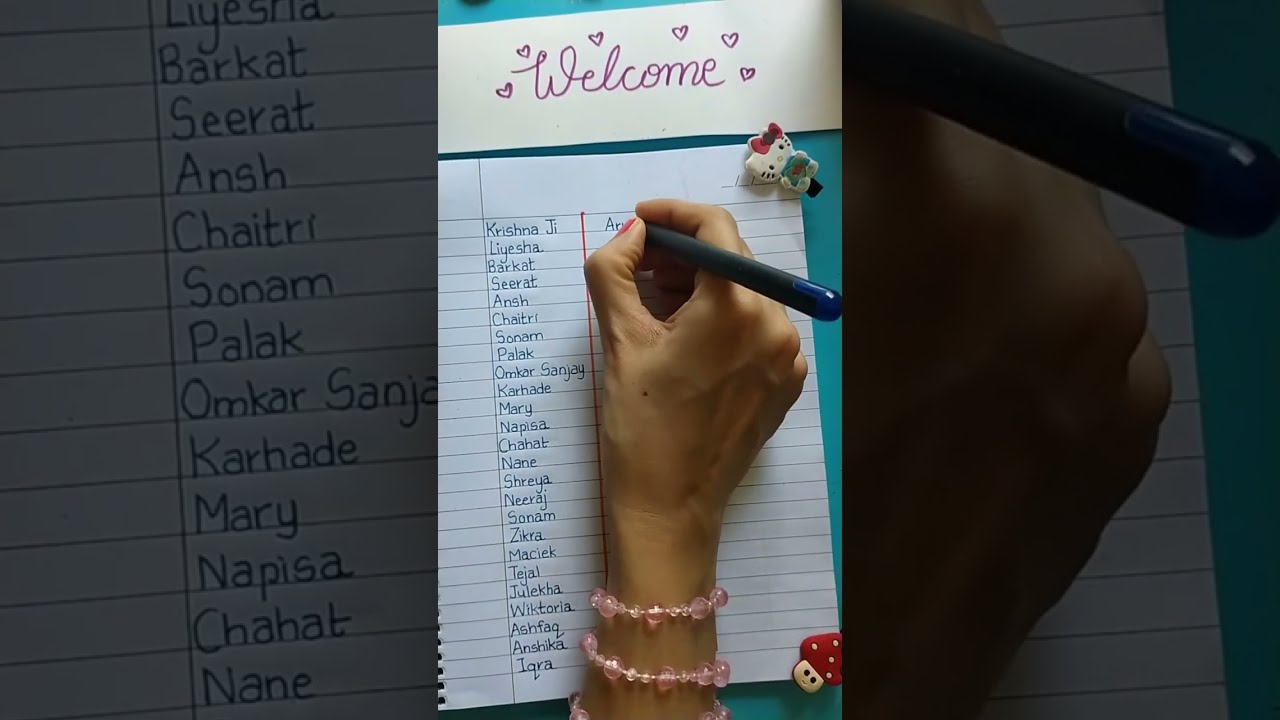 Welcome
Krishna Ji
Liyesha
Barkat
Seerat
Ansh
Chaitri
Sonam
Palak
Omkar Sanjay
Karhade
Mary
Napisa
Chahat
Nane
Shreya
Neeraj
Sonam
Zikra
Maciek
Tejal
Julekha
Wiktoria
Ashfaq
Anshika
Iqra